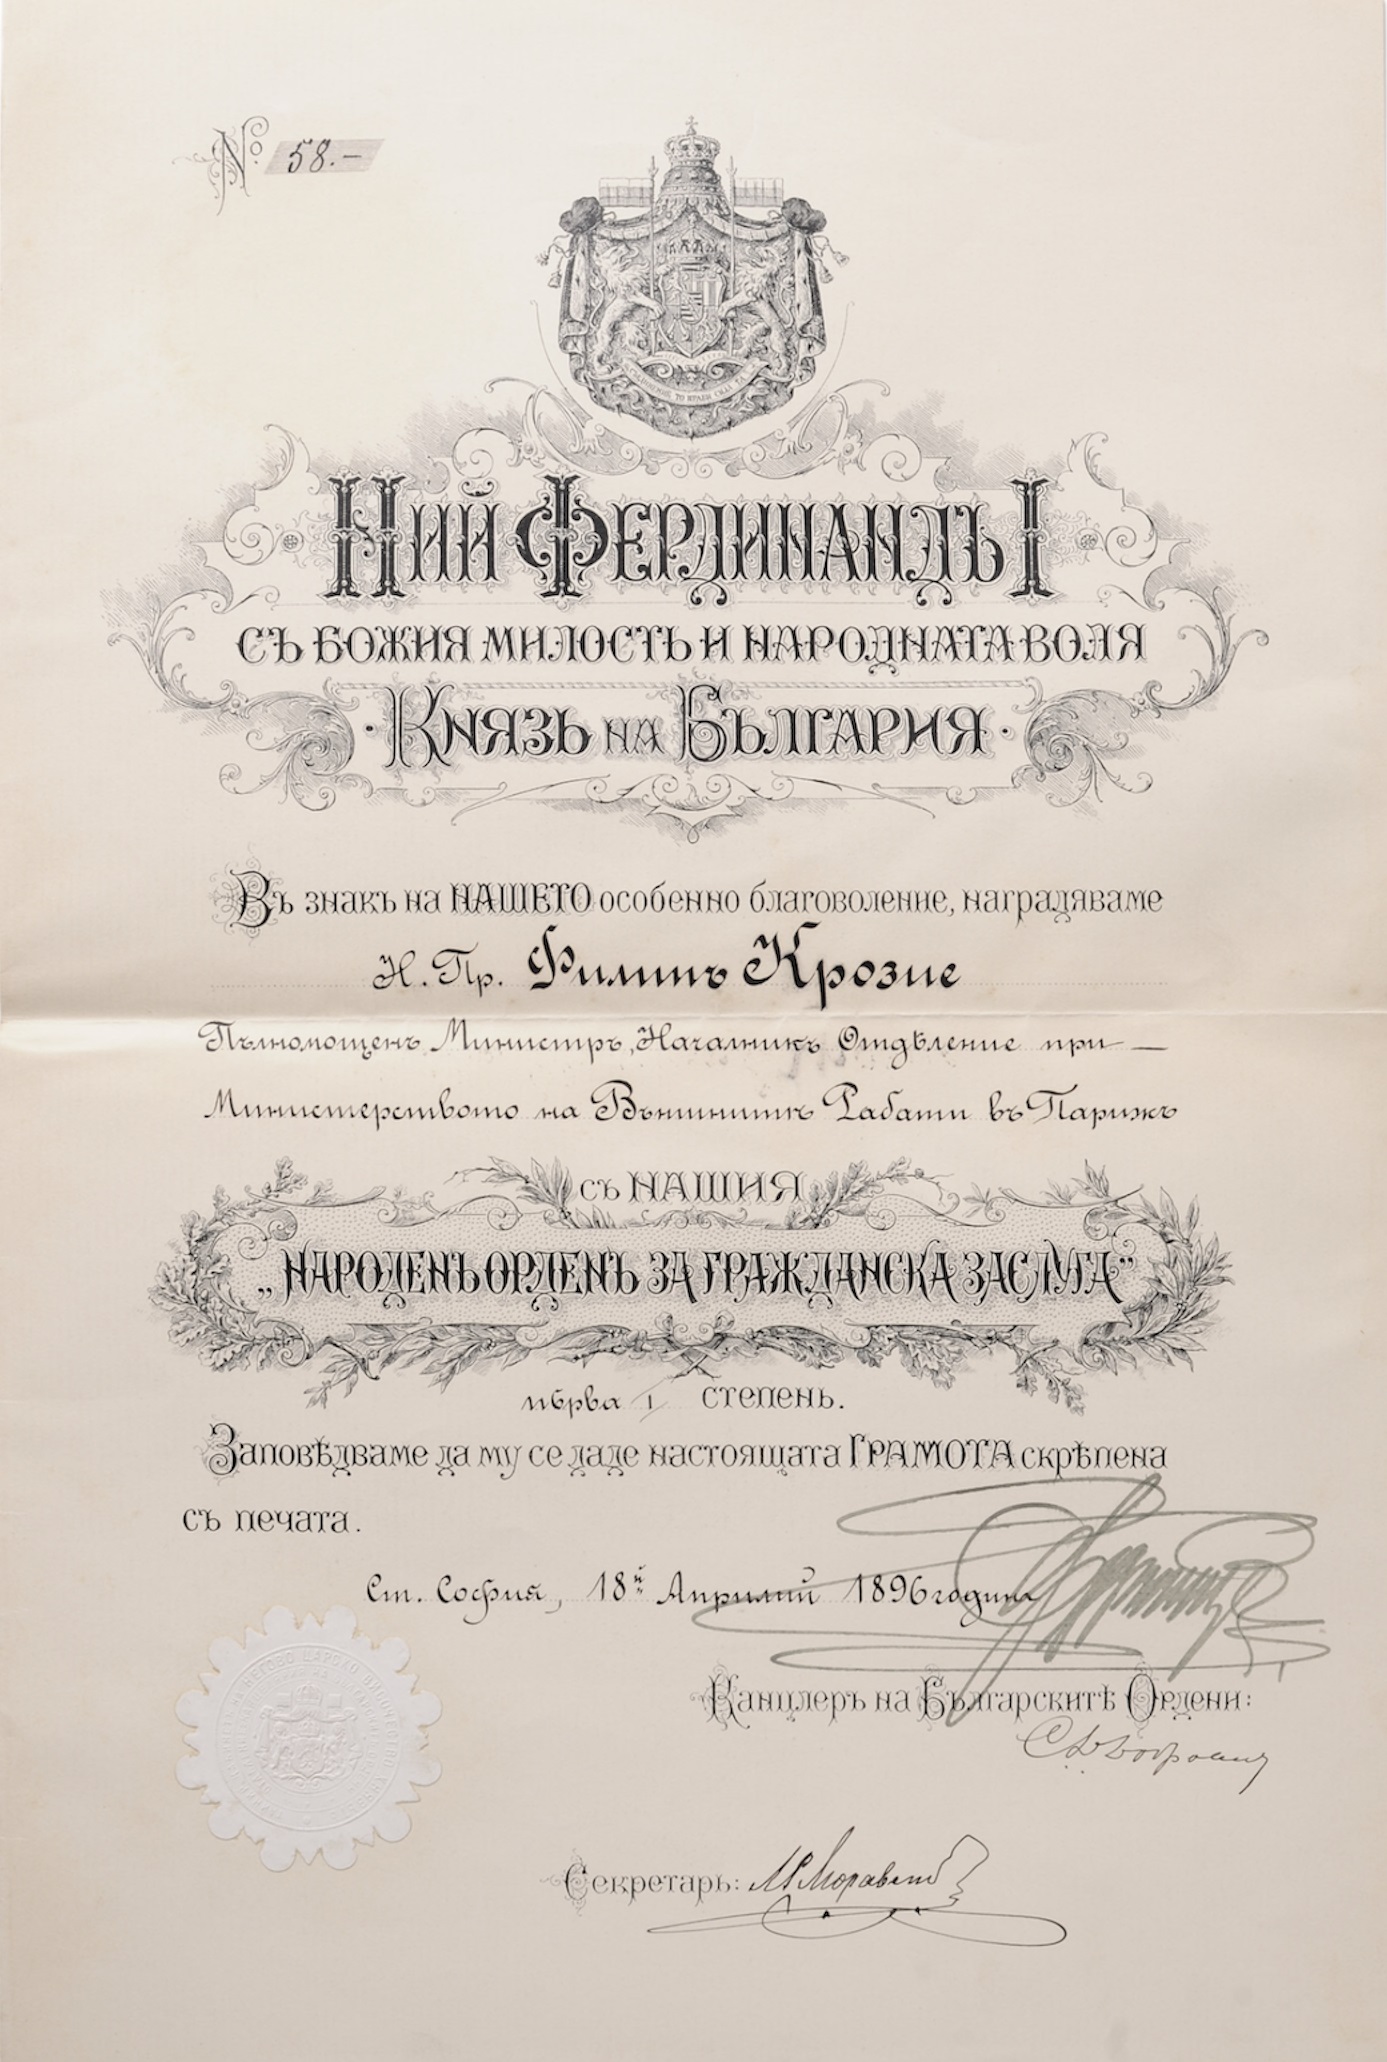 № 58.—
СЪЕДИНЕНИЕТО ПРАВИ СИЛАТА
Ний Фердинандъ I
СЪ БОЖИЯ МИЛОСТЬ И НАРОДНАТА ВОЛЯ
· Князь на България ·
Въ знакъ на НАШЕТО особенно благоволение, наградяваме
Н. Пр. Филипъ Крозие
Пълномощенъ Министръ, Началникъ Отдѣление при —
Министерството на Външнитѣ Работи въ Парижъ
съ НАШИЯ
„НАРОДЕНЪ ОРДЕНЪ ЗА ГРАЖДАНСКА ЗАСЛУГА“
първа I степень.
Заповѣдваме да му се даде настоящата ГРАМОТА скрѣпена
съ печата.
Ст. София, 18й Априлий 1896 година
Канцлеръ на Българскитѣ Ордени:
Секретарь: